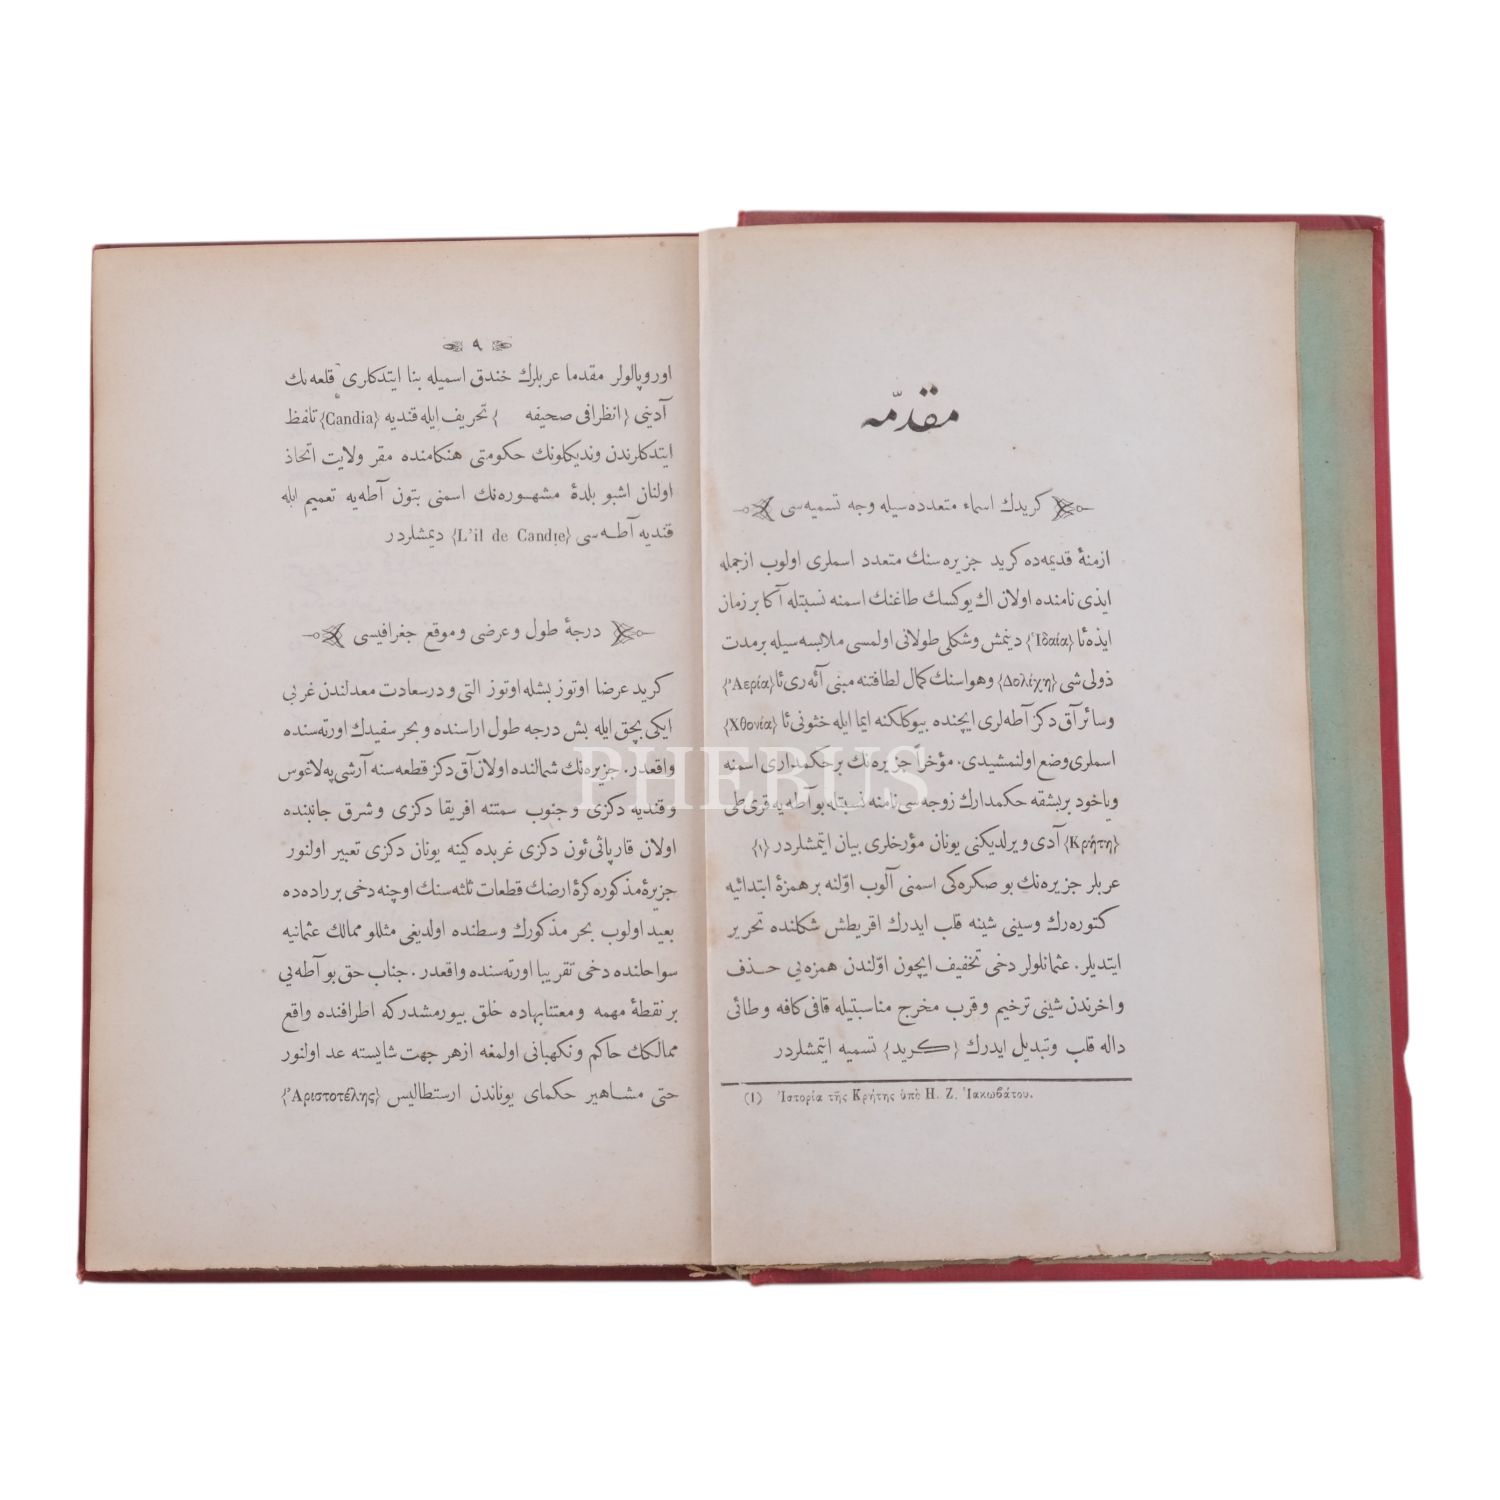 مقدّمه
كريدك اسماء متعدده‌سيله وجه تسميه‌سى
ازمنهٔ قديمه‌ده كريد جزيره‌سنك متعدد اسملرى اولوب ازجمله
ايذى نامنده اولان اك يوكسك طاغنك اسمنه نسبتله آكا بر زمان
ايذه ئا {Ἰδαία} ديمش وشكلى طولانى اولمسى ملابسه‌سيله بر مدت
ذولى شى {Δολίχη} وهواسنك كمال لطافتنه مبنى آئه‌رى ئا {Ἀερία}
وسائر آق دكز آطه‌لرى ايچنده بيوكلكنه ايما ايله خثونى ئا {Χθονία}
اسملرى وضع اولنمشيدى. مؤخراً جزيره‌نك بر حكمدارى اسمنه
وياخود بر بشقه حكمدارك زوجه‌سى نامنه نسبتله بو آطه‌يه قرى‌طى
{Κρήτη} آدى ويرلديكنى يونان مؤرخلرى بيان ايتمشلردر {١}
عربلر جزيره‌نك بو صكره‌كى اسمنى آلوب اوّلنه بر همزهٔ ابتدائيه
كتوره‌رك وسينى شينه قلب ايدرك اقريطش شكلنده تحرير
ايتديلر. عثمانلولر دخى تخفيف ايچون اوّلندن همزه‌يى حذف
واخرندن شينى ترخيم وقرب مخرج مناسبتيله قافى كافه وطائى
داله قلب وتبديل ايدرك {كريد} تسميه ايتمشلردر
(1) Ἱστορία τῆς Κρήτης ὑπὸ Η. Ζ. Ἰακωβάτου.
٩
اوروپالولر مقدما عربلرك خندق اسميله بنا ايتدكلرى قلعه‌نك
آدينى {انظر الى صحيفه } تحريف ايله قنديه {Candia} تلفظ
ايتدكلرندن ونديكلونك حكومتى هنكامنده مقر ولايت اتخاذ
اولنان اشبو بلدهٔ مشهوره‌نك اسمنى بتون آطه‌يه تعميم ايله
قنديه آطه‌سى {L'il de Candie} ديمشلردر
درجهٔ طول وعرضى وموقع جغرافيسى
كريد عرضا اوتوز بشله اوتوز التى ودرسعادت معدلندن غربى
ايكى بچق ايله بش درجه طول اراسنده وبحر سفيدك اورته‌سنده
واقعدر. جزيره‌نك شمالنده اولان آق دكز قطعه‌سنه آرشى په لاغوس
وقنديه دكزى وجنوب سمتنه افريقا دكزى وشرق جانبنده
اولان قارپاثى ئون دكزى غربده كينه يونان دكزى تعبير اولنور
جزيرهٔ مذكوره كرهٔ ارضك قطعات ثلثه‌سنك اوچنه دخى بر راده‌ده
بعيد اولوب بحر مذكورك وسطنده اولديغى مثللو ممالك عثمانيه
سواحلنده دخى تقريبا اورته‌سنده واقعدر. جناب حق بو آطه‌يى
بر نقطهٔ مهمه ومعتنابهاده خلق بيورمشدركه اطرافنده واقع
ممالكك حاكم ونكهبانى اولمغه ازهر جهت شايسته عد اولنور
حتى مشاهير حكماى يوناندن ارستطاليس {Ἀριστοτέλης}
PHEBUS